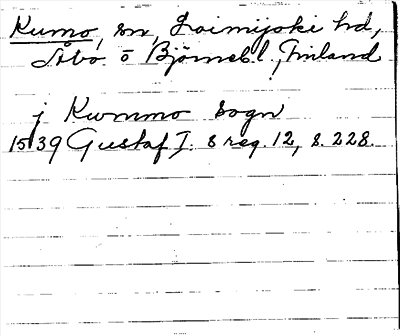 Kumo, sn, Loimijoki hd,
Åbo o Björneb. l., Finland
j Kummo Sogn
1539 Gustaf I. s reg. 12, s. 228.